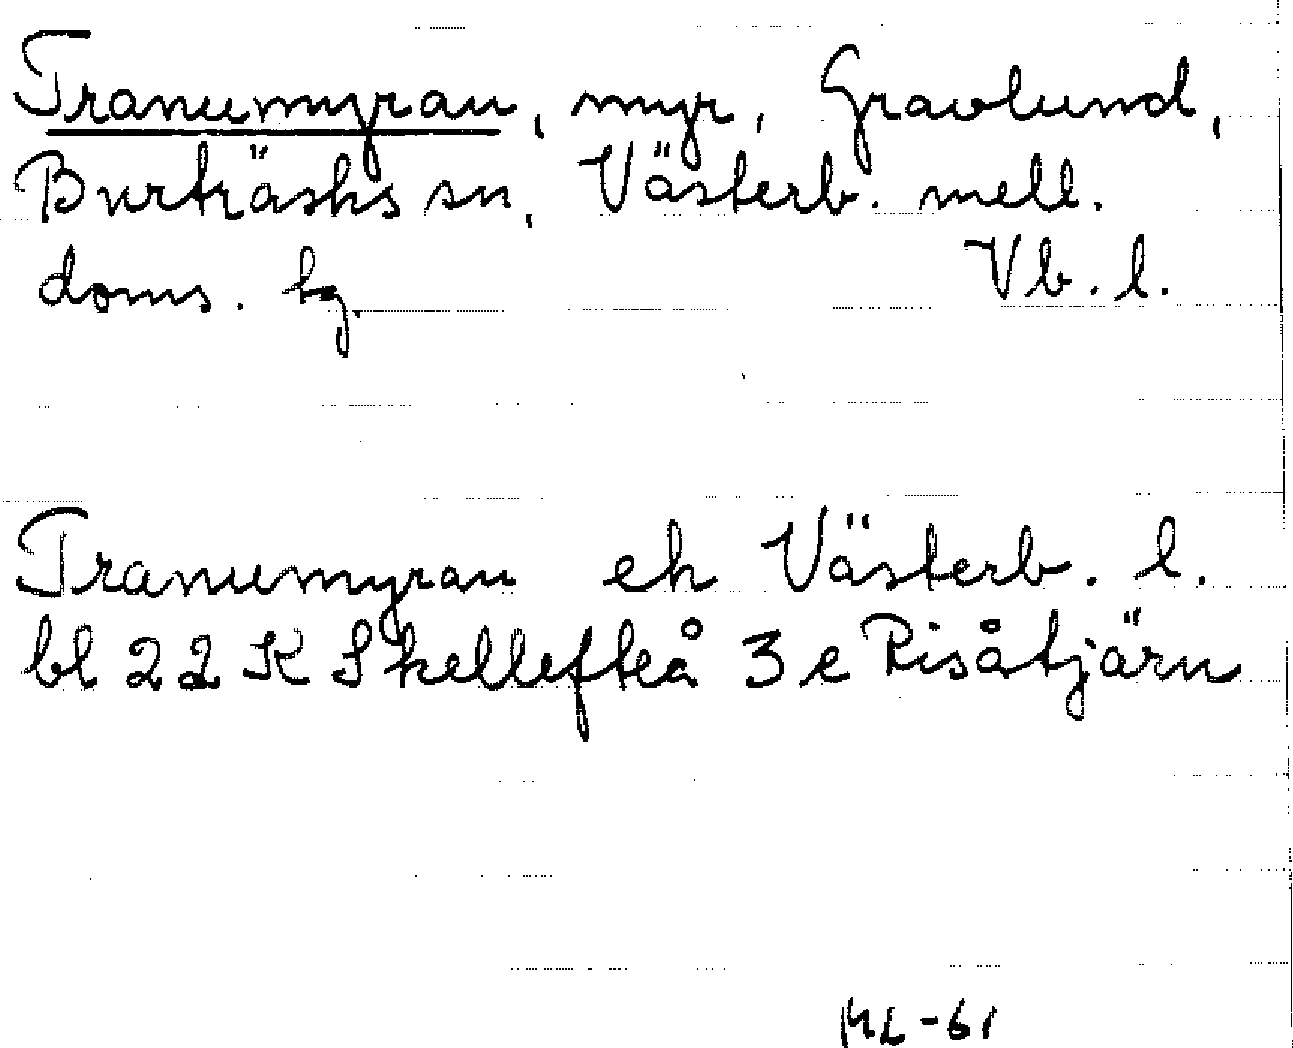 Tranumyran, myr, Gravlund,
Burträsks sn, Västerb. mell.
doms. hg. Vb. l.
Tranumyran ek Västerb. l.
bl 22 K Skellefteå 3 e Risåtjärn
ML-61